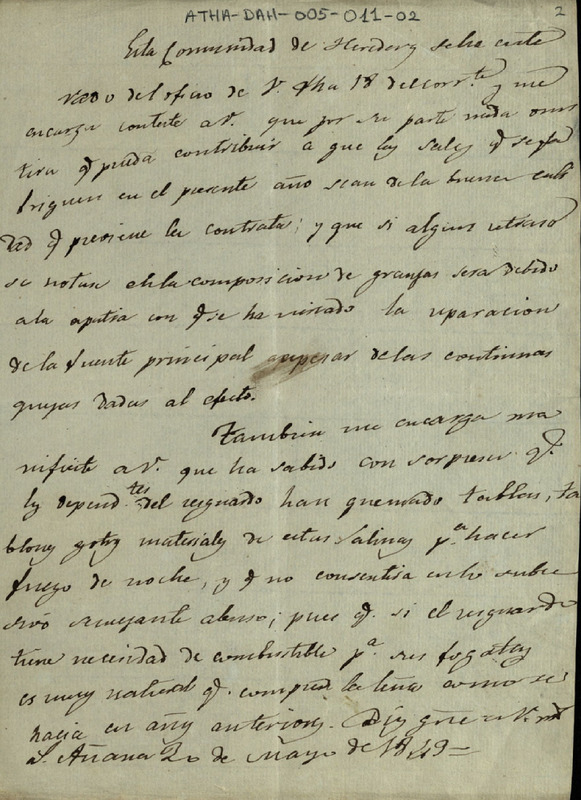 ATHA-DAH-005-011-02
2
Esta Comunidad de Herederos se ha ente
rado del oficio de V. fha 18 del corr.te y me
encarga conteste a V. que por su parte nada omi
tira q pueda contribuir a que las sales q se fa
briquen en el presente año sean de la buena cali
dad q previene la contrata; y que si algun retraso
se notase en la composicion de granjas sera debido
a la apatia con q se ha mirado la reparacion
de la fuente principal apesar de las continuas
quejas dadas al efecto.
Tambien me encarga ma
nifieste a V. que ha sabido con sorpresa q.
los depend.tes del resguardo han quemado tablas, ta
blones y otros materiales de estas Salinas p.a hacer
fuego de noche, y q no consentira en lo subce
sivo semejante abuso; pues q. si el resguardo
tiene necesidad de combustible p.a sus fogatas
es muy natural q. compren la leña como se
hacia en años anteriores. Dios gue a V. m.s a.s
Añana 20 de Mayo de 1843=